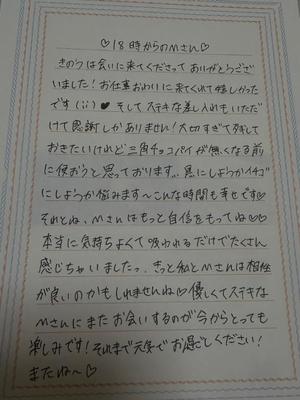 ♡18時からのMさん♡
きのうは会いに来てくださってありがとうござ
いました!お仕事おわりに来てくれて嬉しかった
です(;;)♥そしてステキな差し入れもいただ
けて感謝しかありません!大切すぎて残して
おきたいけれど三角チョコパイが無くなる前
に使おうと思っております。黒にしようかイチゴ
にしようか悩みます〜こんな時間も幸せです♡
それとね、Mさんはもっと自信をもってね♡♡
本当に気持ちよくて吸われるだけでたくさん
感じちゃいましたっ。きっと私とMさんは相性
が良いのかもしれませんね♡優しくてステキな
Mさんにまたお会いするのが今からとっても
楽しみです!それまで元気でお過ごしください!
またね〜♡